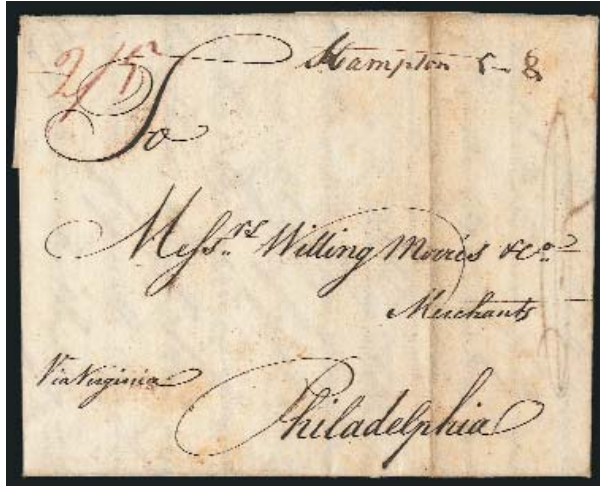 2/5 Hampton 5-8
To
Messrs. Willing Morris &Co.
Merchants
Via Virginia
Philadelphia